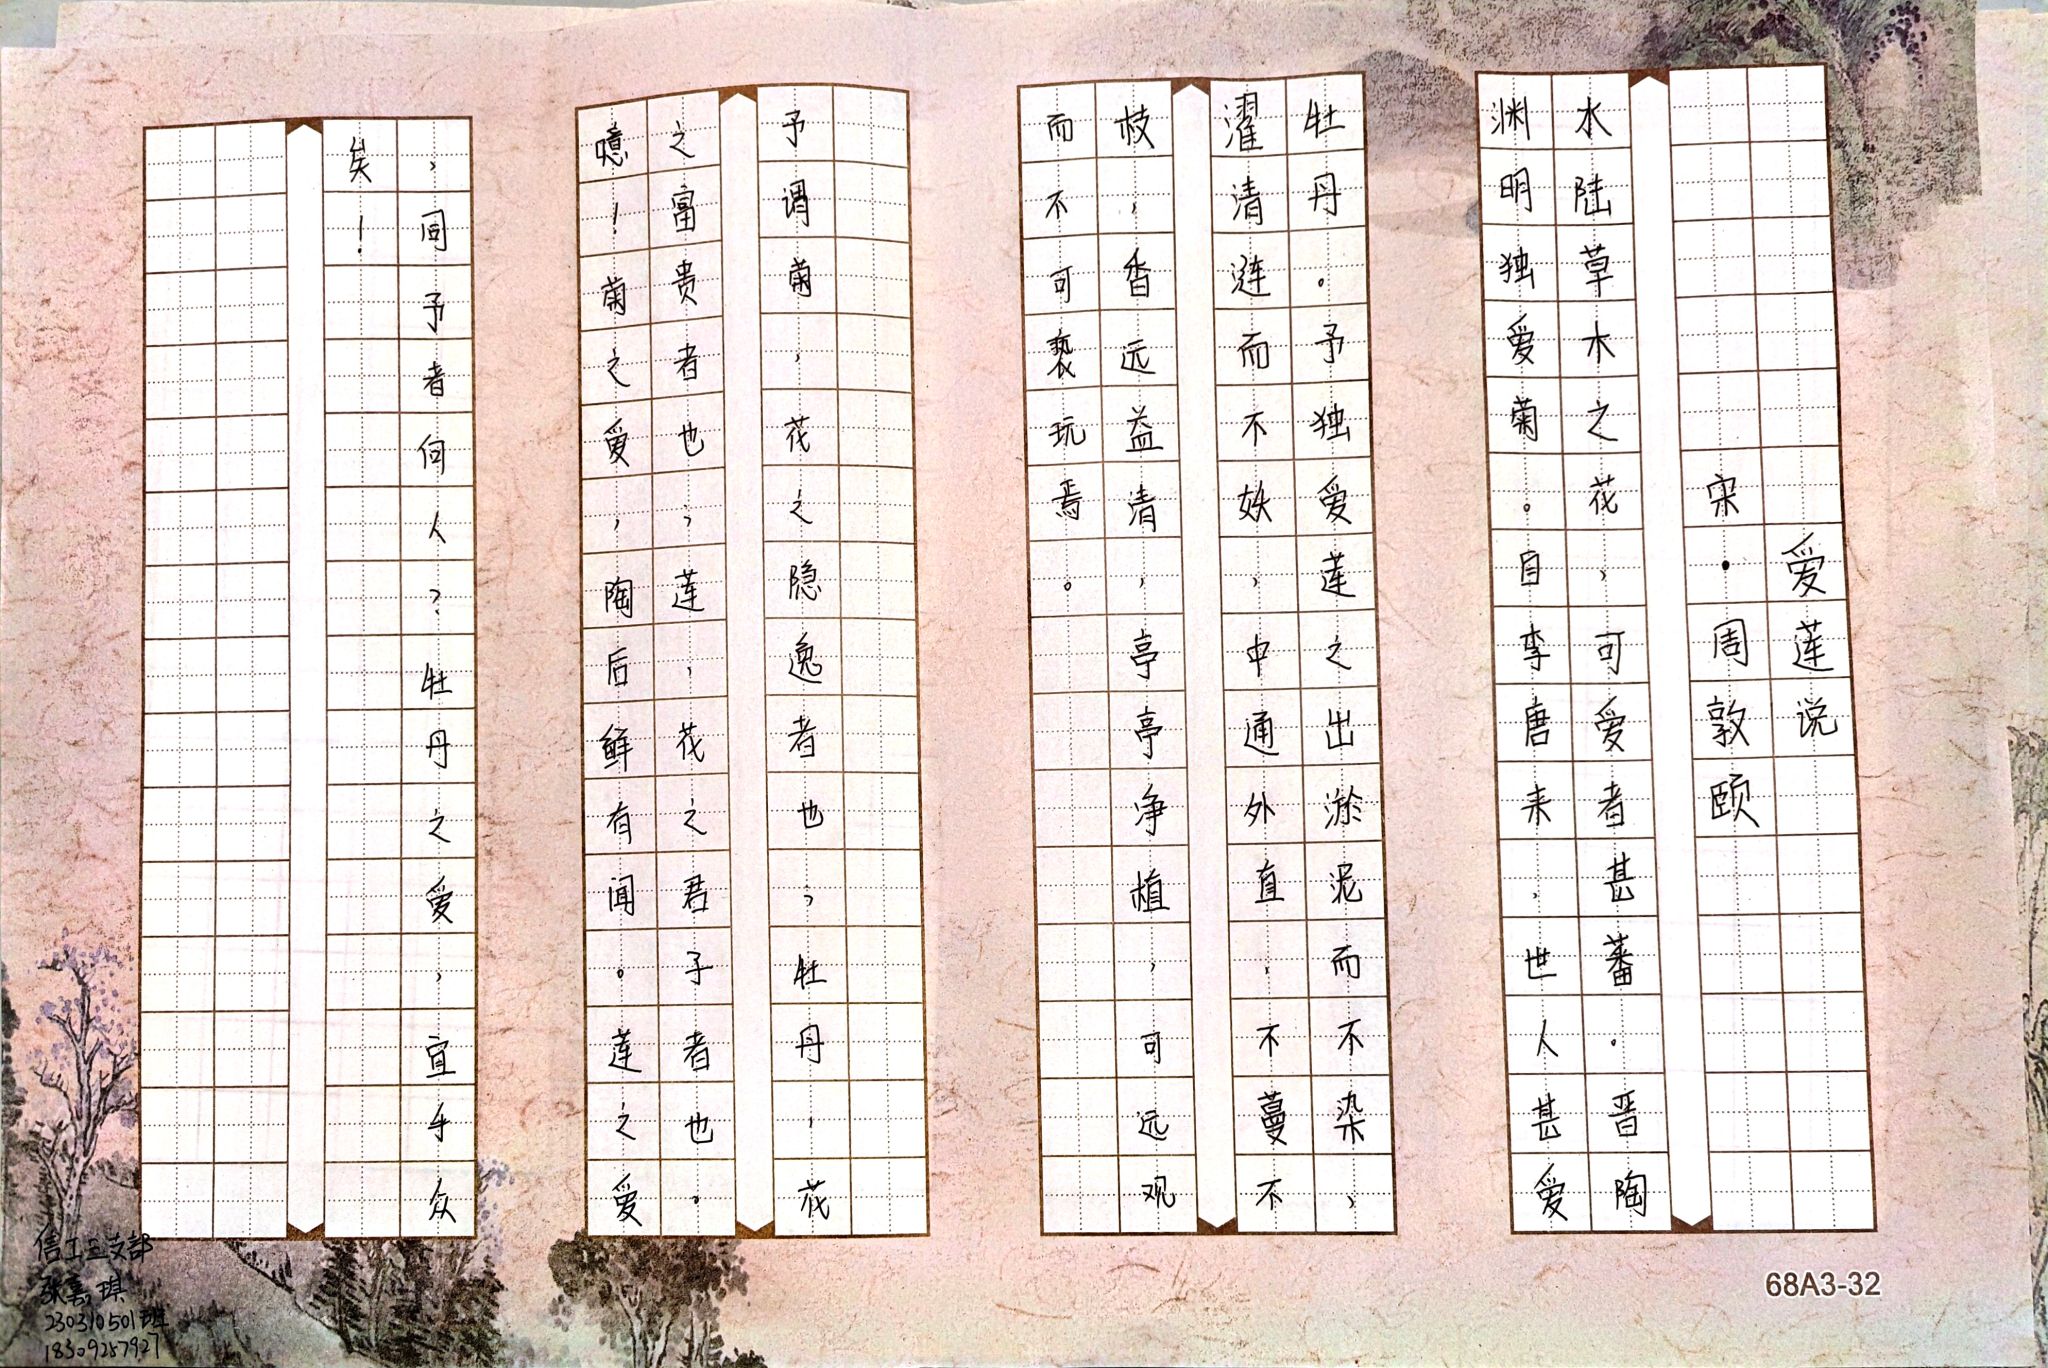 爱莲说
宋·周敦颐
水陆草木之花，可爱者甚蕃。晋陶
渊明独爱菊。自李唐来，世人甚爱
牡丹。予独爱莲之出淤泥而不染，
濯清涟而不妖，中通外直，不蔓不
枝，香远益清，亭亭净植，可远观
而不可亵玩焉。
予谓菊，花之隐逸者也；牡丹，花
之富贵者也；莲，花之君子者也。
噫！菊之爱，陶后鲜有闻。莲之爱
，同予者何人？牡丹之爱，宜乎众
矣！
信工三支部
张嘉琪
230310501班
18309257927
68A3-32